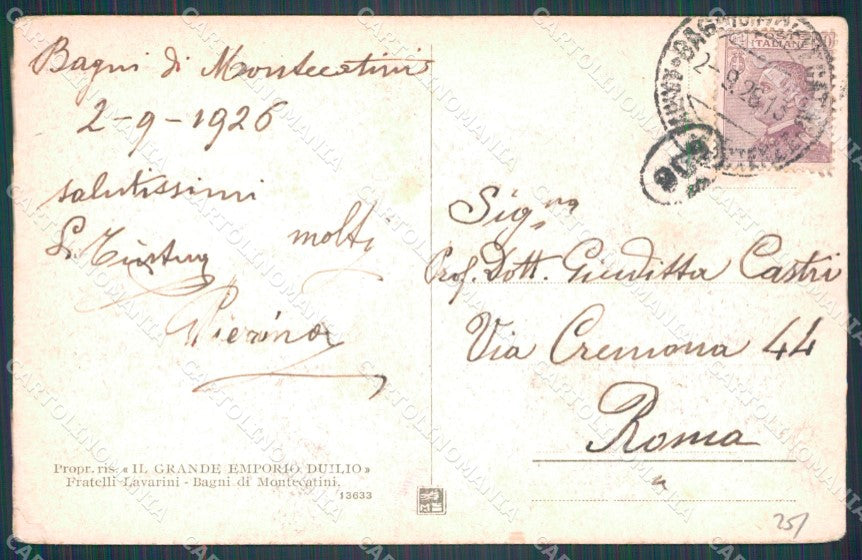 Bagni di Montecatini
2-9-1926
salutissimi
molti
Pierina
Propr. ris. «IL GRANDE EMPORIO DUILIO»
Fratelli Lavarini - Bagni di Montecatini.
13633
ITALIANE
2-9.26.15
Sig.na
Prof. Dott. Giuditta Castri
Via Cremona 44
Roma
25/
CARTOLINOMANIA